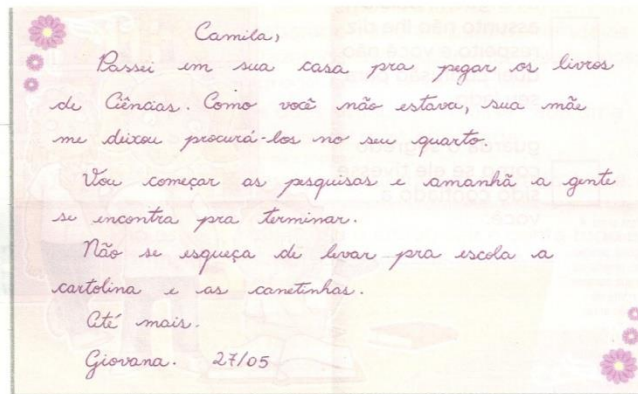 Camila,
Passei em sua casa pra pegar os livros
de Ciências. Como você não estava, sua mãe
me deixou procurá-los no seu quarto.
Vou começar as pesquisas e amanhã a gente
se encontra pra terminar.
Não se esqueça de levar pra escola a
cartolina e as canetinhas.
Até mais.
Giovana. 27/05